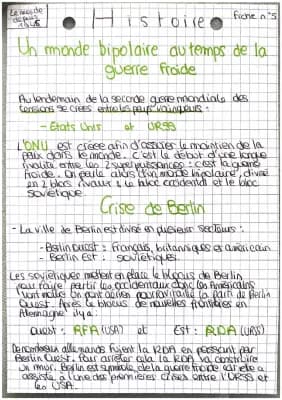 Le monde depuis 1945
Histoire
Fiche n°5
Un monde bipolaire au temps de la
guerre froide
Au lendemain de la seconde guerre mondiale des
tensions se crées entre les pays vainqueurs :
- Etats Unis et URSS
L'ONU est créée afin d'assurer le maintien de la
paix dans le monde. C'est le début d'une longue
rivalité entre les 2 superpuissances : c'est la guerre
froide. On parle alors d'un monde bipolaire, divisé
en 2 blocs rivaux : le bloc occidental et le bloc
soviétique.
Crise de Berlin
- La ville de Berlin est divisé en plusieur secteurs :
- Berlin ouest : Français, britanniques et américain
- Berlin Est : soviétiques.
Les soviétiques mettent en place le blocus de Berlin
pour faire partir les occidentaux donc les Américains
vont mettre un pont aérien pour la partie de Berlin
Ouest. Après le blocus de nouvelles frontières en
Allemagne il y a :
Ouest : RFA (USA) et Est : RDA (URSS)
De nombreux allemands fuient la RDA en passant par
Berlin Ouest. Pour arrêter cela la RDA va construire
un mur. Berlin est symbole de la guerre froide car elle a
assisté à l'une des premières crises entre l'URSS et
les USA.